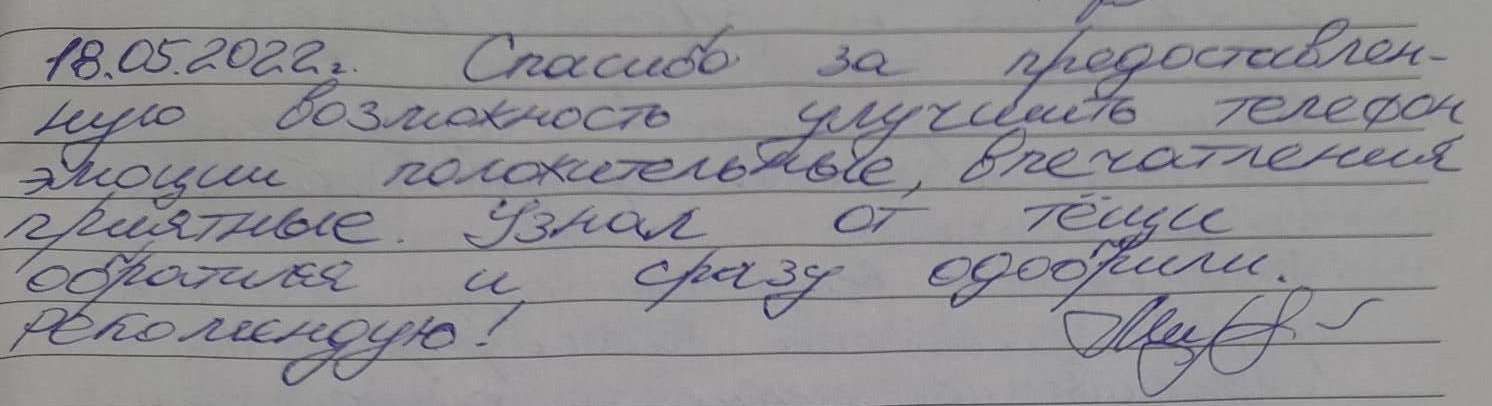 18.05.2022г. Спасибо за предоставлен-
ную возможность улучшить телефон
эмоции положительные, впечатления
приятные. Узнал от тёщи
обратился и сразу одобрили.
Рекомендую!